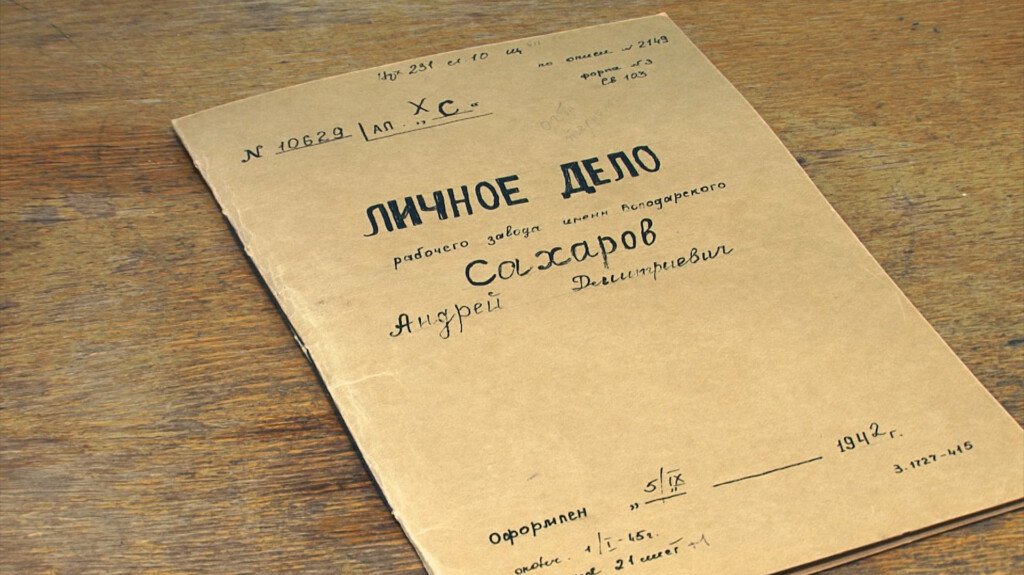 231 ст 10
по описи № 2149
форма № 3
СВ 103
N 10629 АП. Х „С“
ЛИЧНОЕ ДЕЛО
рабочего завода имени Володарского
Сахаров
Андрей Дмитриевич
Оформлен „5/IX“ 1942 г.
3.1727-415
1/I-45г.
21 +1